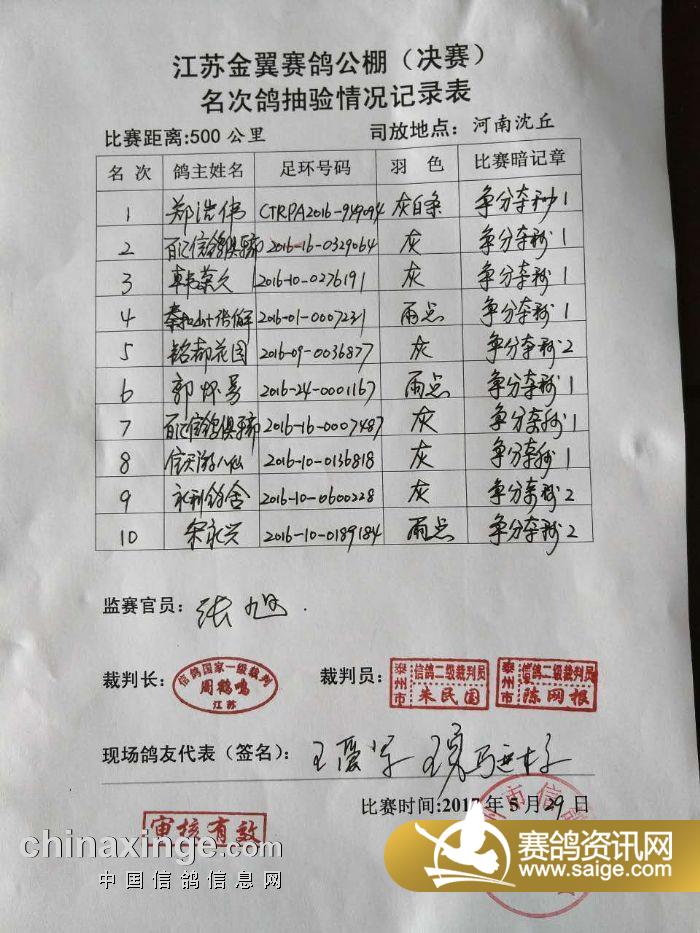 江苏金翼赛鸽公棚（决赛）
名次鸽抽验情况记录表
比赛距离:500公里 司放地点：河南沈丘
名次 鸽主姓名 足环号码 羽色 比赛暗记章
1 郑浩伟 CTRPA2016-949094 灰白条 争分夺秒1
2 百亿信鸽俱乐部 2016-16-0329064 灰 争分夺秒1
3 韩荣久 2016-10-0276191 灰 争分夺秒1
4 2016-01-0007231 雨点 争分夺秒1
5 铭都花园 2016-09-0036877 灰 争分夺秒2
6 郭怀勇 2016-24-0001167 雨点 争分夺秒1
7 百亿信鸽俱乐部 2016-16-0007487 灰 争分夺秒1
8 2016-10-0136818 灰 争分夺秒1
9 永利鸽舍 2016-10-0600228 灰 争分夺秒2
10 宋永兴 2016-10-0189184 雨点 争分夺秒2
监赛官员：张旭
裁判长：
信鸽国家一级裁判
周鹤鸣
江苏
裁判员：
泰州市
信鸽二级裁判员
朱民国
泰州市
信鸽二级裁判员
陈网根
现场鸽友代表（签名）：
比赛时间:2017年5月29日
审核有效
chinaxinge.com
中国信鸽信息网
赛鸽资讯网
www.saige.com